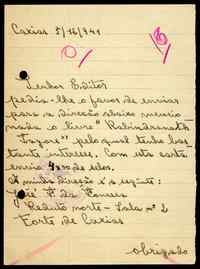 Caxias 5/16/941
Senhor Editor
pedia-lhe o favor de enviar
para a direcção abaixo mencio
nada o livro "Rabindranath
Tagore" pelo qual tenho bas
tante interesse. Com esta carta
envio 4 de selos.
A minha direcção é a seguinte:
José F. da Fonseca
Reduto norte - Sala nº 2
Forte de Caxias
obrigado